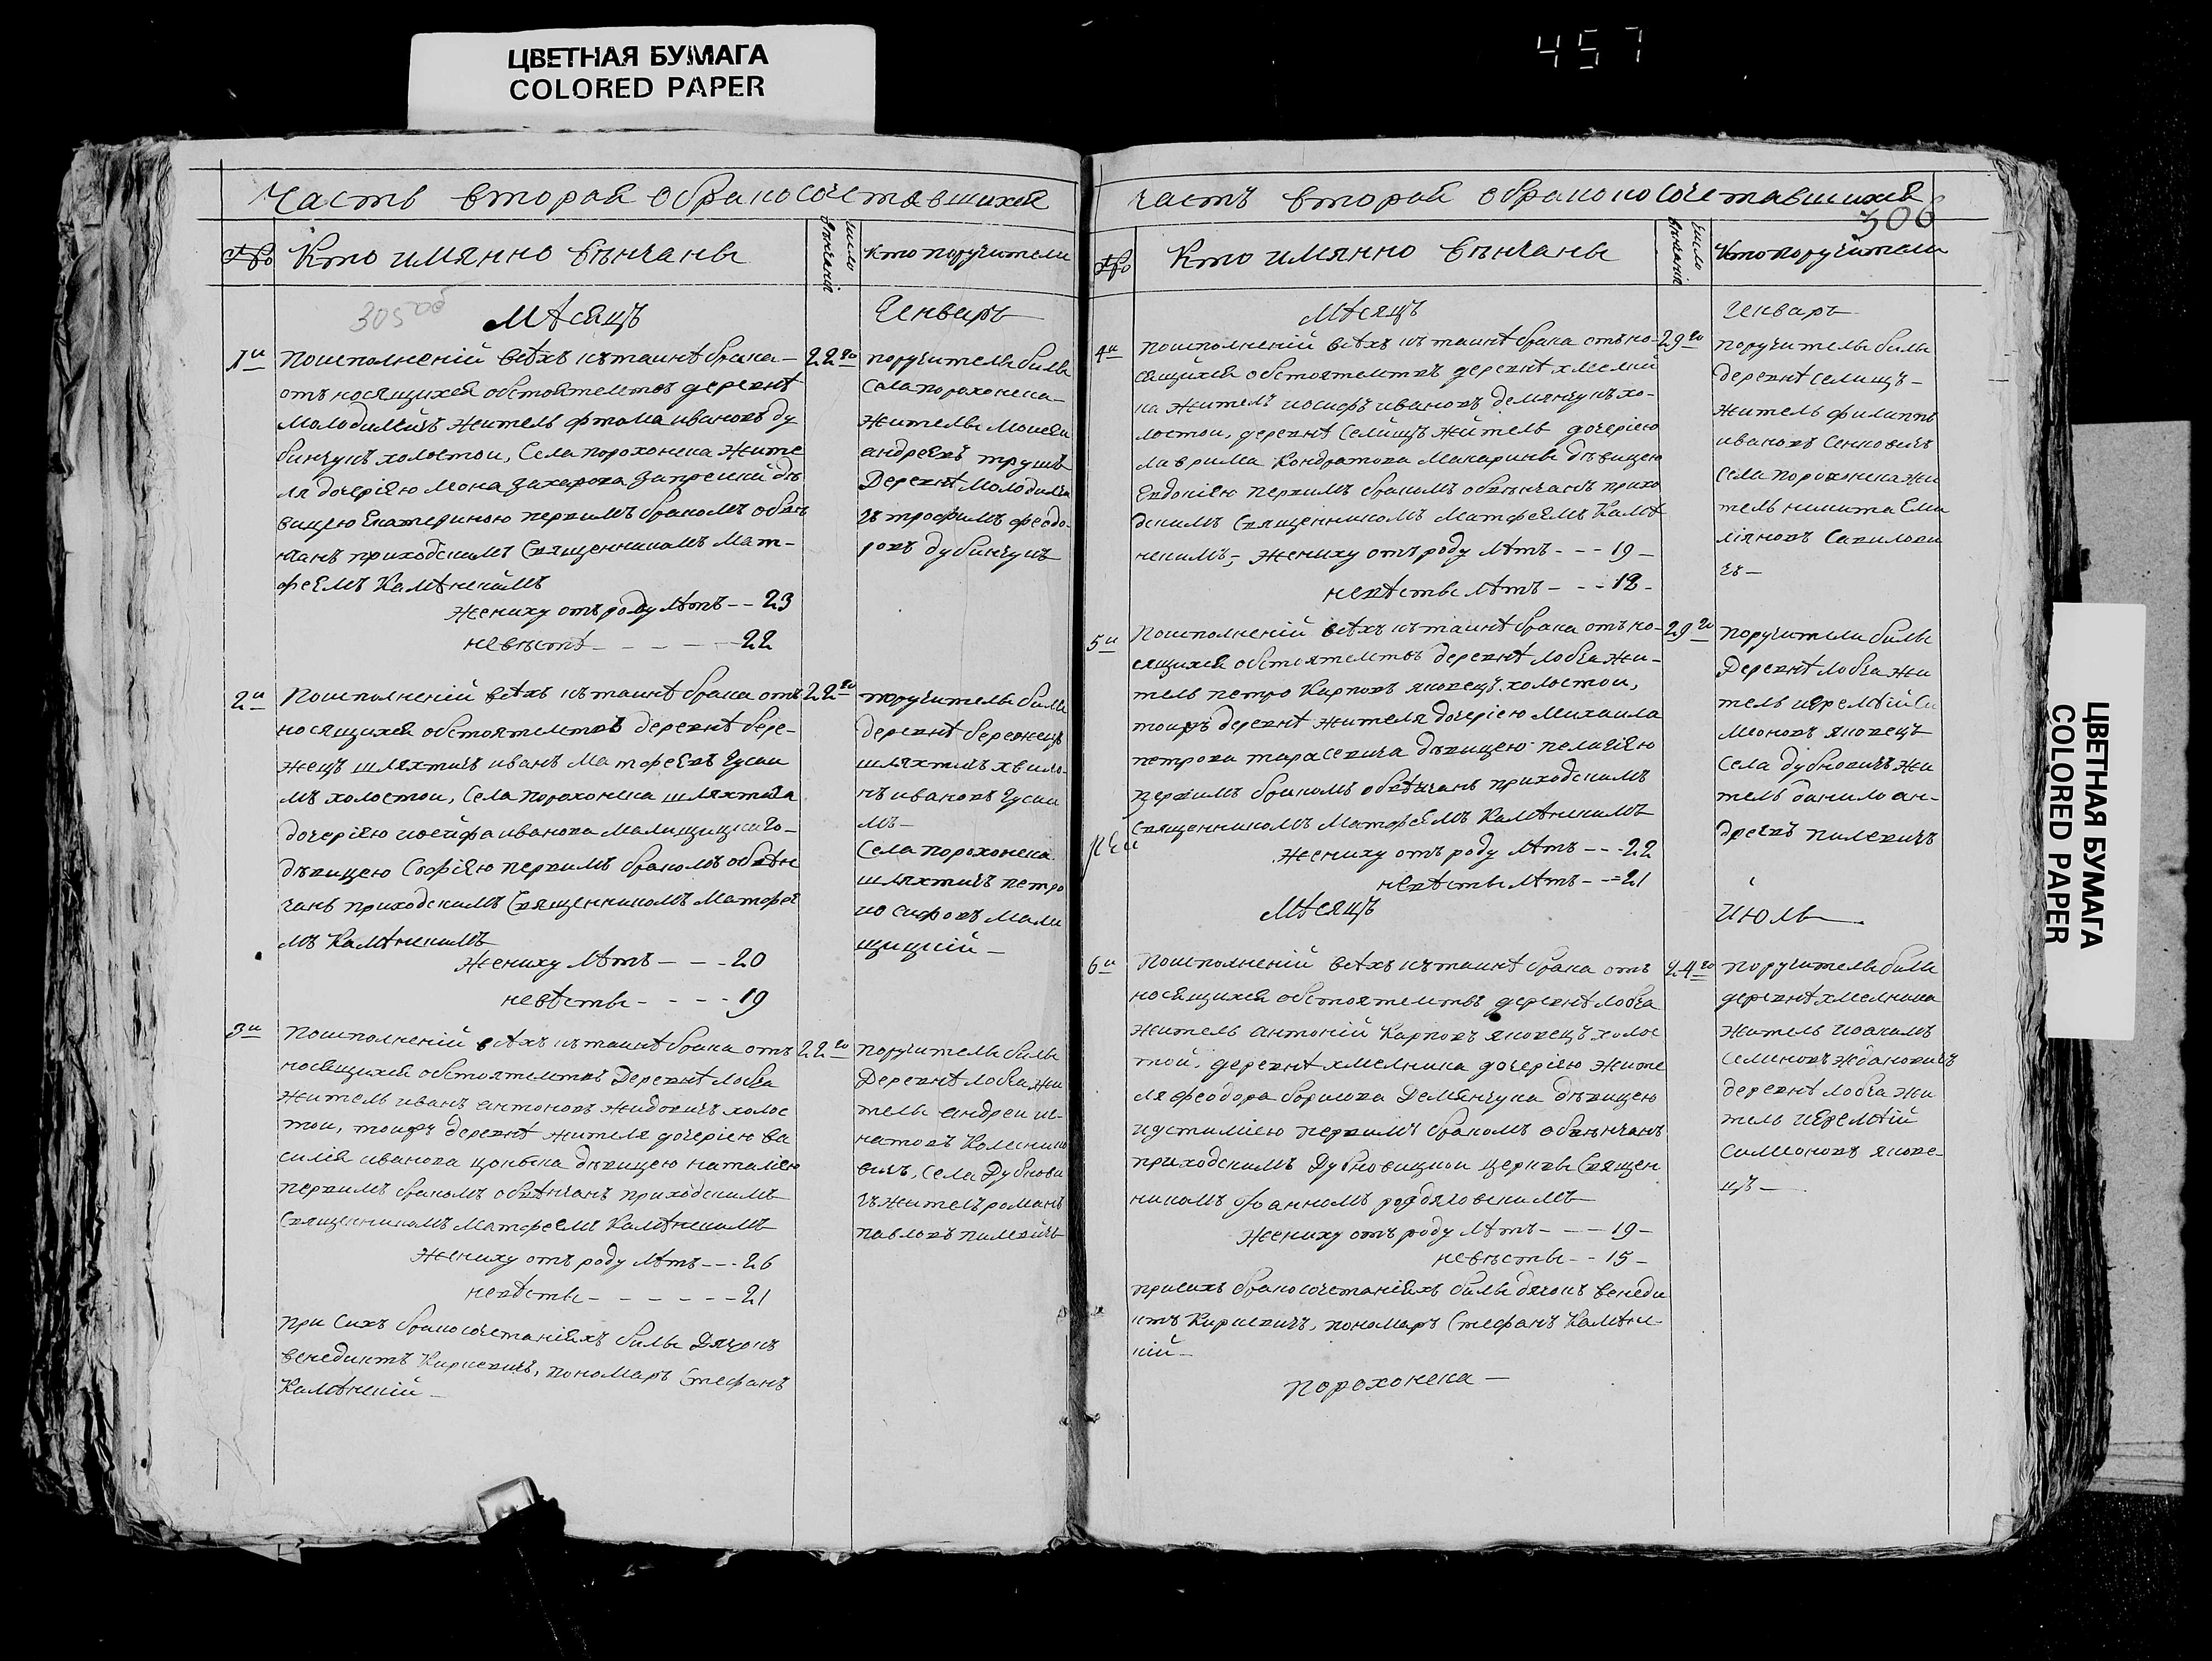 ЦВЕТНАЯ БУМАГА
COLORED PAPER
457
Часть вторая обракосочетавшихся
№ Кто имянно вѣнчаны
число вѣнчанія
Кто поручители
305 об
Мѣсяцъ
Генварь
1й
Поисполненій всѣхъ къ таинѣ брака
отъносящихся обстоятелствъ деревнѣ
Молодилчъ житель фтома ивановъ ду
бинчукъ холостои, Села порохонска жите
ля дочеріею Мона Захарова Запреский дѣ
вицею Екатериною первимъ бракомъ обвѣ
нчанъ приходскимъ Священникомъ Мат-
феемъ Камѣнскимъ
жениху отъ роду лѣтъ - - 23
невѣстѣ - - - - - 22
22го
поручители били
Села порохонска
жители Моисеи
андреевъ трушъ
Деревнѣ Молодилчи
чъ трофимъ феодо-
ровъ дубинчукъ
2й
Поисполненій всѣхъ къ таинѣ брака отъ
носящихся обстоятелствъ деревнѣ бере-
жецъ шляхтичъ иванъ Матфеевъ Гусаи
мъ холостои, Села порохонска шляхтича
дочеріею иосифа иванова Малищицкого
дѣвицею Софіею первимъ бракомъ обвѣн
чанъ приходскимъ Священникомъ Матфее
мъ Камѣнскимъ
жениху лѣтъ - - - 20
невѣсты - - - - 19
22го
поручители били
деревнѣ бережецъ
шляхтичъ хвило-
нъ ивановъ Гусаи
мъ-
Села порохонска
шляхтичъ петро
иосифовъ Мали
щицкій -
3й
Поисполненій всѣхъ къ таинѣ брака отъ
носящихся обстоятелствъ Деревнѣ лобча
житель иванъ антоновъ жидовичъ холос
тои, тоижъ деревнѣ жителя дочеріею ва
силія иванова дѣвицею наталіею
первимъ бракомъ обвѣнчанъ приходскимъ
Священникомъ Матфеемъ Камѣнскимъ
жениху отъ роду лѣтъ - - - 26
невѣсты - - - - - - 21
при Сихъ бракосочетаніяхъ били Дячокъ
венедиктъ Кириевичъ, пономаръ Стефанъ
Камѣнскій -
22го
поручители били
Деревнѣ лобча жи
тель андреи иг-
натовъ Колеснико
вичъ, Села Дубнови
чъ житель романъ
павловъ пилевичъ
часть вторая обракопосочетавшихся
306
№ Кто имянно вѣнчаны
число вѣнчанія
Кто поручители
Мѣсяцъ
Генварь
4й
Поисполненій всѣхъ къ таинѣ брака отъно-
сящихся обстоятелствъ деревнѣ хмелни
ка житель иосифъ ивановъ демянчукъ хо-
лостои, деревнѣ Селищъ житель дочеріею
лаврима Кондратова Макарини дѣвицею
Евдокіею первимъ бракомъ обвѣнчанъ прихо
дскимъ Священникомъ Матфеемъ Камѣ
нскимъ, жениху отъ роду лѣтъ - - - 19 -
невѣсты лѣтъ - - - 18 -
29го
поручители били
деревнѣ селищъ -
житель филиппъ
ивановъ Сенковичъ
Села порохонска жи
тель никита Еми
ліяновъ Савилови
чъ -
5й
Поисполненій всѣхъ къ таинѣ брака отъ но-
сящихся обстоятелствъ деревнѣ лобча жи-
тель петро Карповъ яковецъ холостои,
тоижъ деревнѣ жителя дочеріею Михаила
петрова тарасевича дѣвицею пелагіею
первимъ бракомъ обвѣнчанъ приходскимъ
Священникомъ Матфеемъ Камѣнскимъ
жениху отъ роду лѣтъ - - - 22
невѣсты лѣтъ - - 21
29го
поручители били
Деревнѣ лобча жи
тель иеремѣй Си
меоновъ яковецъ
Села дубновичъ жи
тель данило ан-
дреевъ пилевичъ
Мѣсяцъ
Июль
6й
Поисполненій всѣхъ къ таинѣ брака отъ
носящихся обстоятелствъ деревнѣ лобча
житель антоній Карповъ яковецъ холос
той, деревнѣ хмелника дочеріею жите
ля феодора борисова Демянчука дѣвицею
иустиміею первимъ бракомъ обвѣнчанъ
приходскимъ Дубновицкои церкви Священ
никомъ Іоанномъ
жениху отъ роду лѣтъ - - - 19 -
невѣсты - - 15 -
присихъ бракосочетаніяхъ били дячокъ венеди
ктъ Кириевичъ, пономаръ Стефанъ Камѣнс-
кій -
порохонска -
24го
поручители били
деревнѣ хмелника
житель иоакимъ
Семеновъ ждановичъ
деревнѣ лобча жи
тель иеремѣй
Симеоновъ якове-
цъ -
ЦВЕТНАЯ БУМАГА
COLORED PAPER